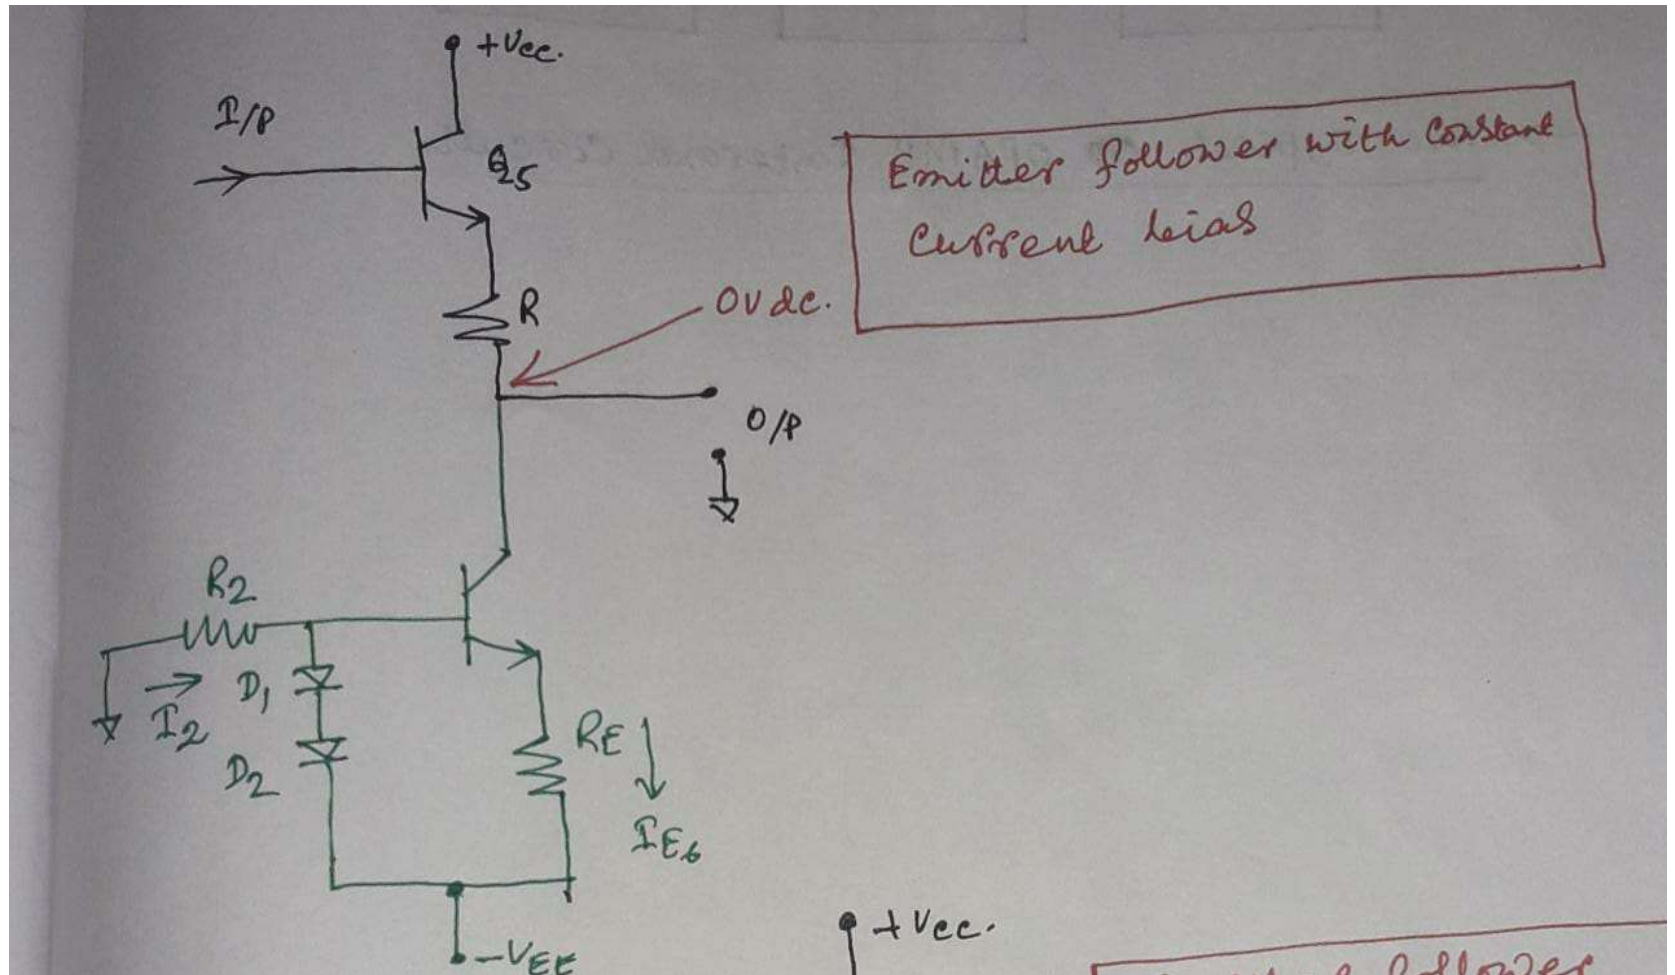 +Vcc.
I/P
Q5
Emitter follower with constant
current bias
R
0V dc.
O/P
R2
I2
D1
D2
RE
IE6
-VEE
+Vcc.
follower